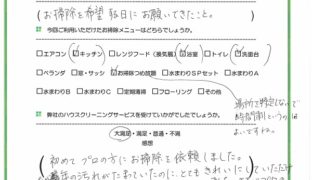 (お掃除を希望 数日にお願いできたこと。)
今回ご利用いただけたお掃除メニューはどちらでしょうか。
□エアコン □キッチン □レンジフード(換気扇) □浴室 □トイレ □洗面台
□ベランダ □窓・サッシ □お掃除つめ放題 □水まわりSPセット □水まわりA
□水まわりB □水まわりC □定期清掃 □フローリング □その他
場所を特定しないで
時間制というのは
よいですね。
弊社のハウスクリーニングサービスを受けていかがでしたでしょうか
大満足・満足・普通・不満
感想
初めてプロの方にお掃除を依頼しました。
長年の汚れがたまっていたのに、とてもきれいにしていただけ